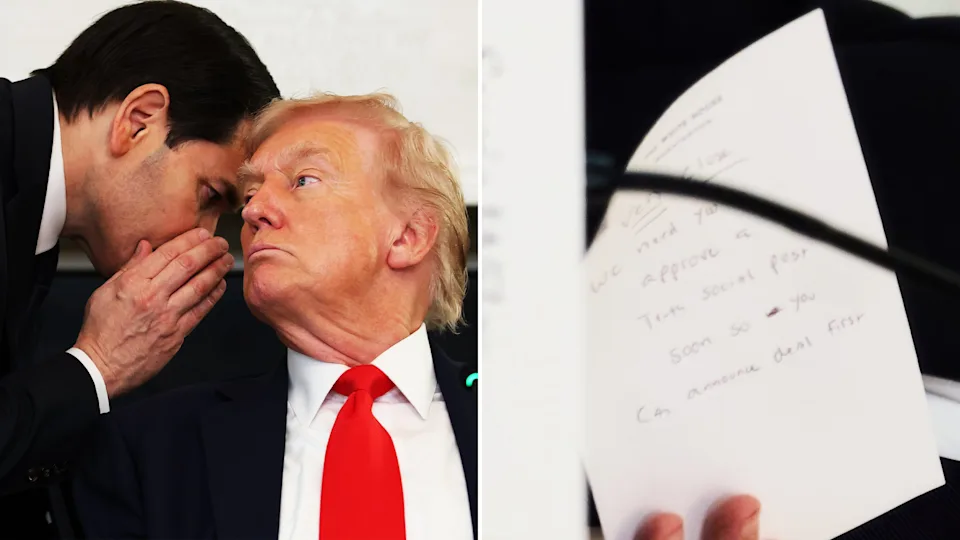 THE WHITE HOUSE
Very close
we need you to
approve a
Truth Social post
soon so you
can announce deal first